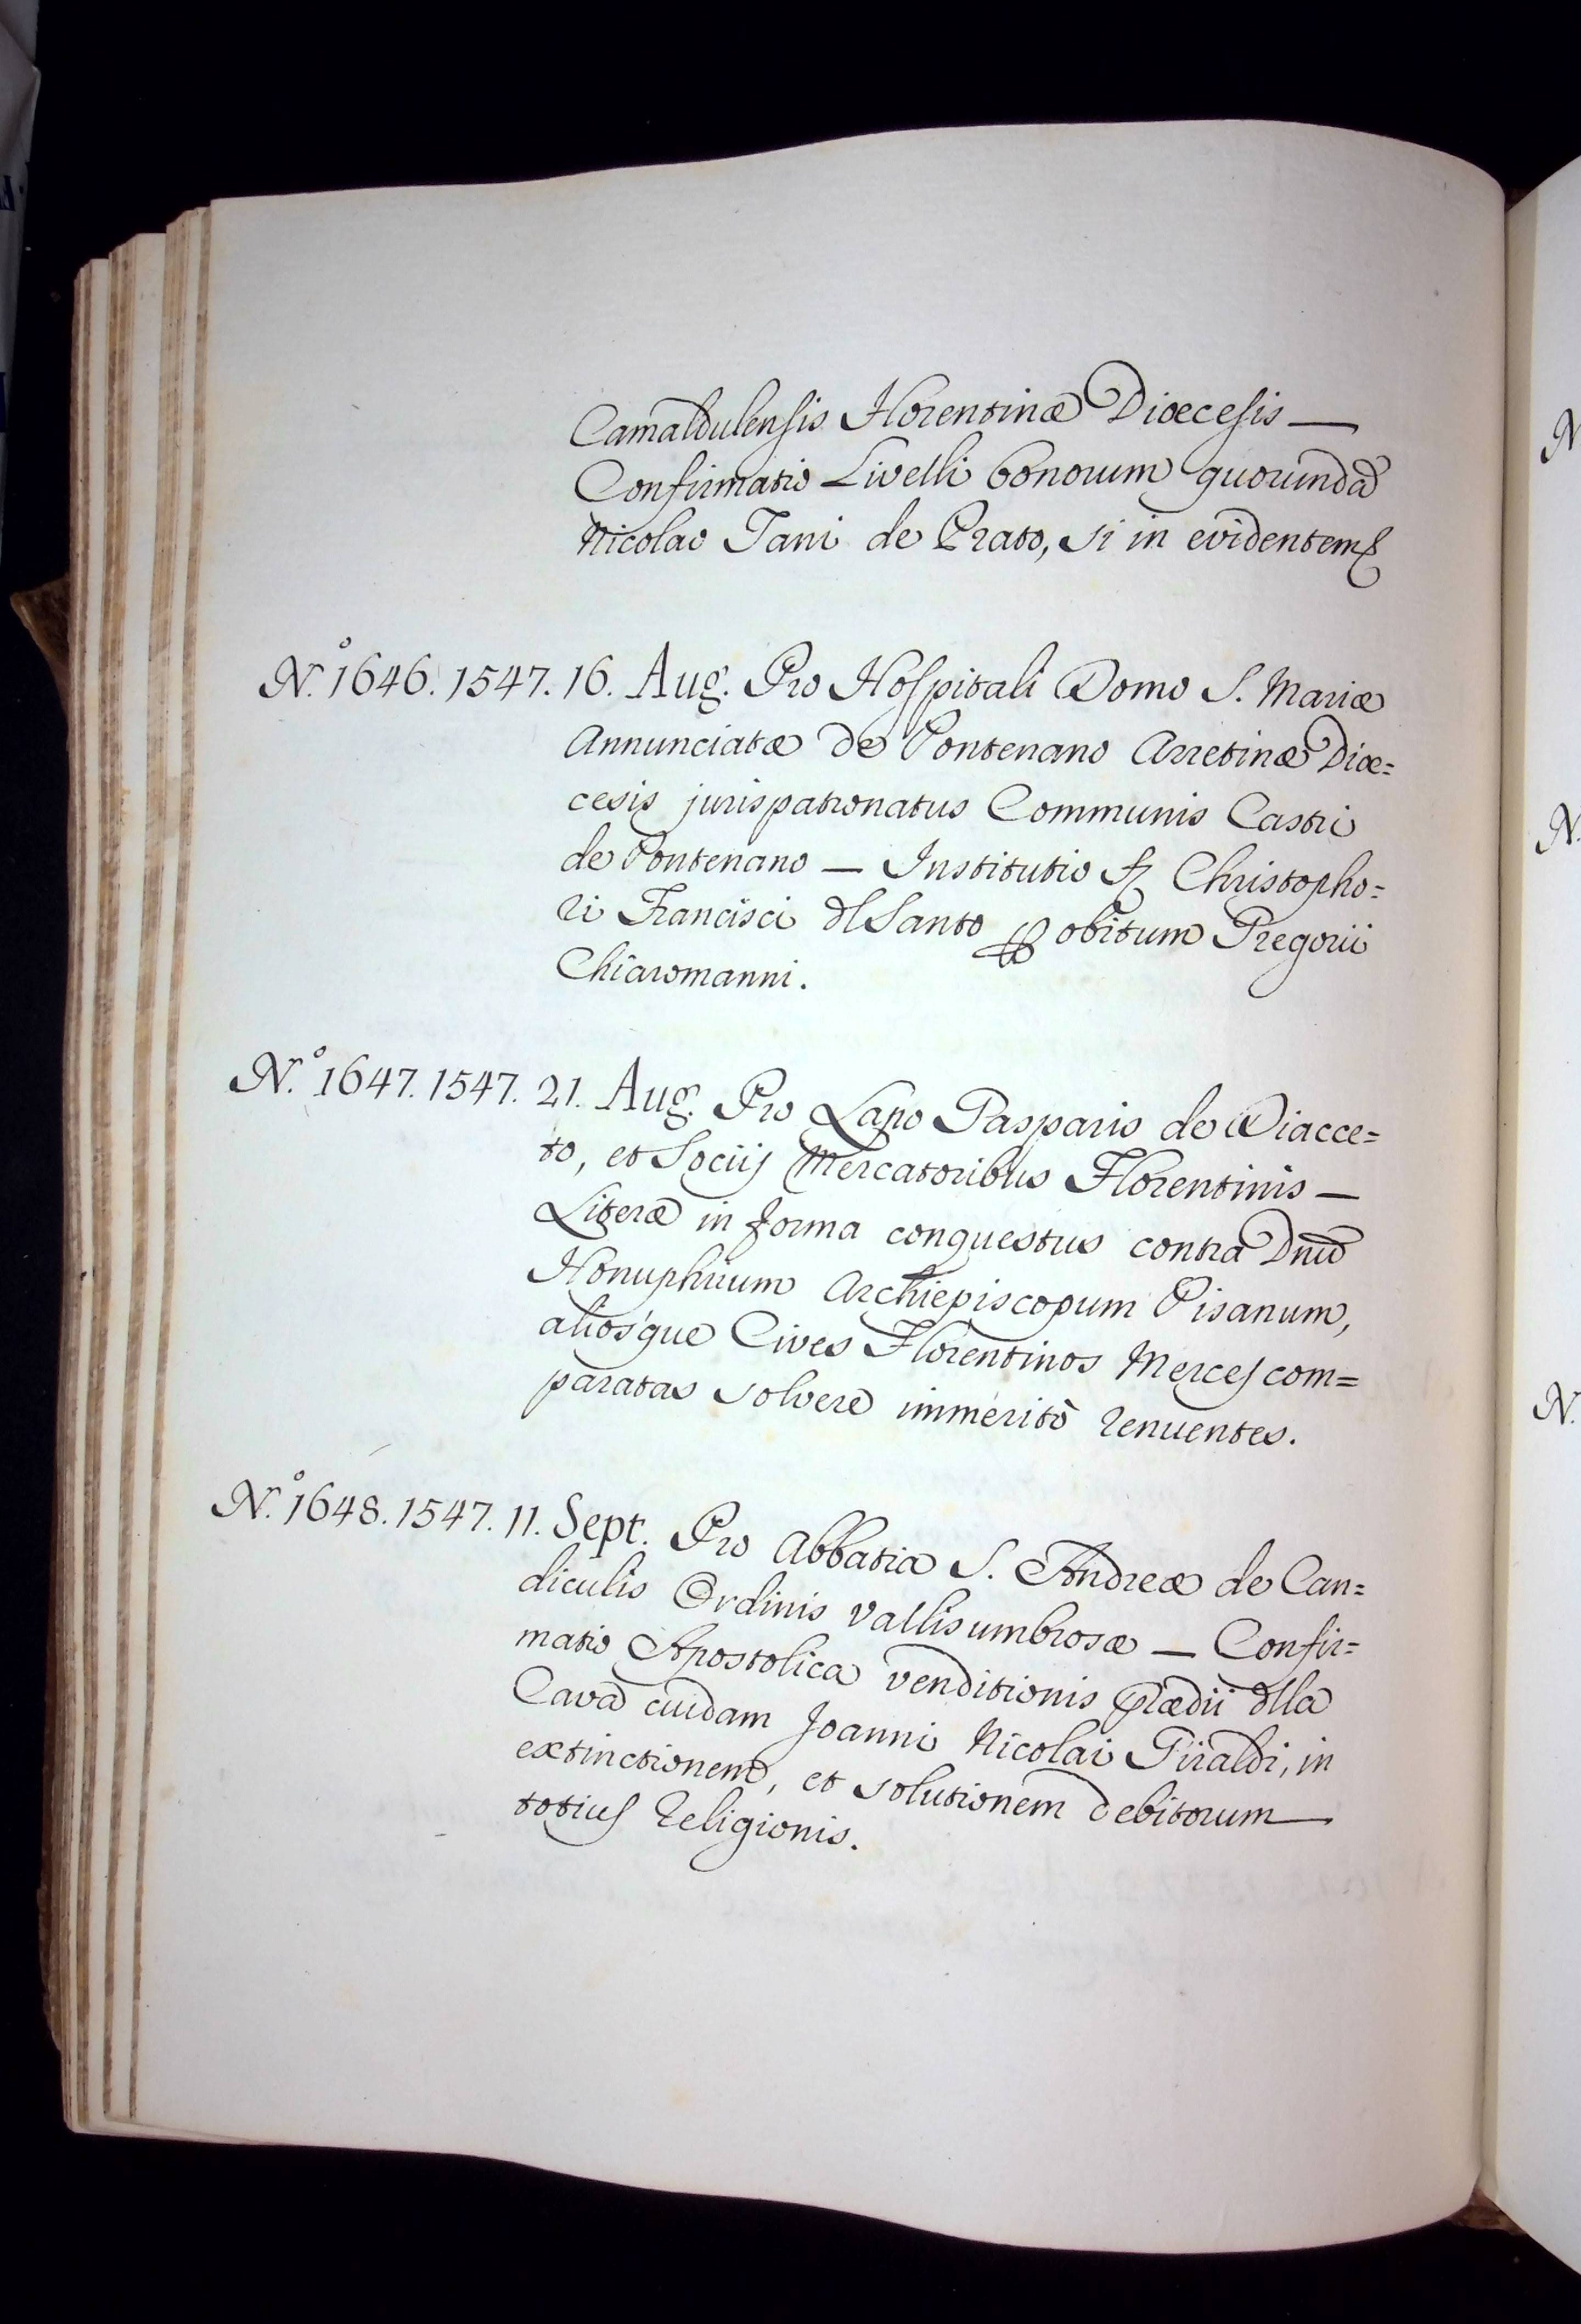 Camaldulensis Florentinæ Diœcesis —
Confirmatio Livelli bonorum quorundā
Nicolao Tani de Prato, si in evidentem &
N.º 1646. 1547. 16. Aug. Pro Hospitali Domo S. Mariæ
Annunciatæ de Pontenano Arretinæ Diœ=
cesis jurispatronatus Communis Castri
de Pontenano — Institutio Christopho=
ri Francisci dl Santo obitum Gregorii
Chiaromanni.
N.º 1647. 1547. 21. Aug. Pro Lapo Gasparis de Diacce=
to, et Sociij Mercatoribus Florentinis —
Literæ in forma conquestus contra Dnū
Honuphrium Archiepiscopum Pisanum,
aliosque Cives Florentinos Merces com=
paratas solvere immeritò renuentes.
N.º 1648. 1547. 11. Sept. Pro Abbatia S. Andreæ de Can=
diculis Ordinis Vallisumbrosæ — Confir=
matio Apostolica venditionis Prædii dlla
Cava cuidam Joanni Nicolai Giraldi, in
extinctionem, et solutionem debitorum —
totius Religionis.